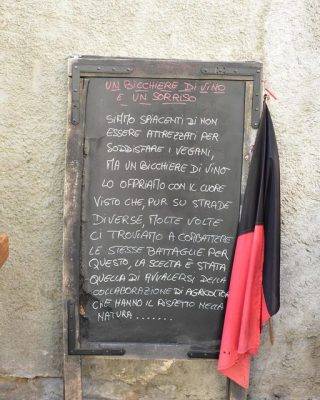 UN BICCHIERE DI VINO
E UN SORRISO
SIAMO SPIACENTI DI NON
ESSERE ATTREZZATI PER
SODDISFARE I VEGANI,
MA UN BICCHIERE DI VINO
LO OFFRIAMO CON IL CUORE
VISTO CHE, PUR SU STRADE
DIVERSE, MOLTE VOLTE
CI TROVIAMO A COMBATTERE
LE STESSE BATTAGLIE PER
QUESTO, LA SCELTA È STATA
QUELLA DI AVVALERSI DELLA
COLLABORAZIONE DI AGRICOLTORI
CHE HANNO IL RISPETTO NELLA
NATURA .......